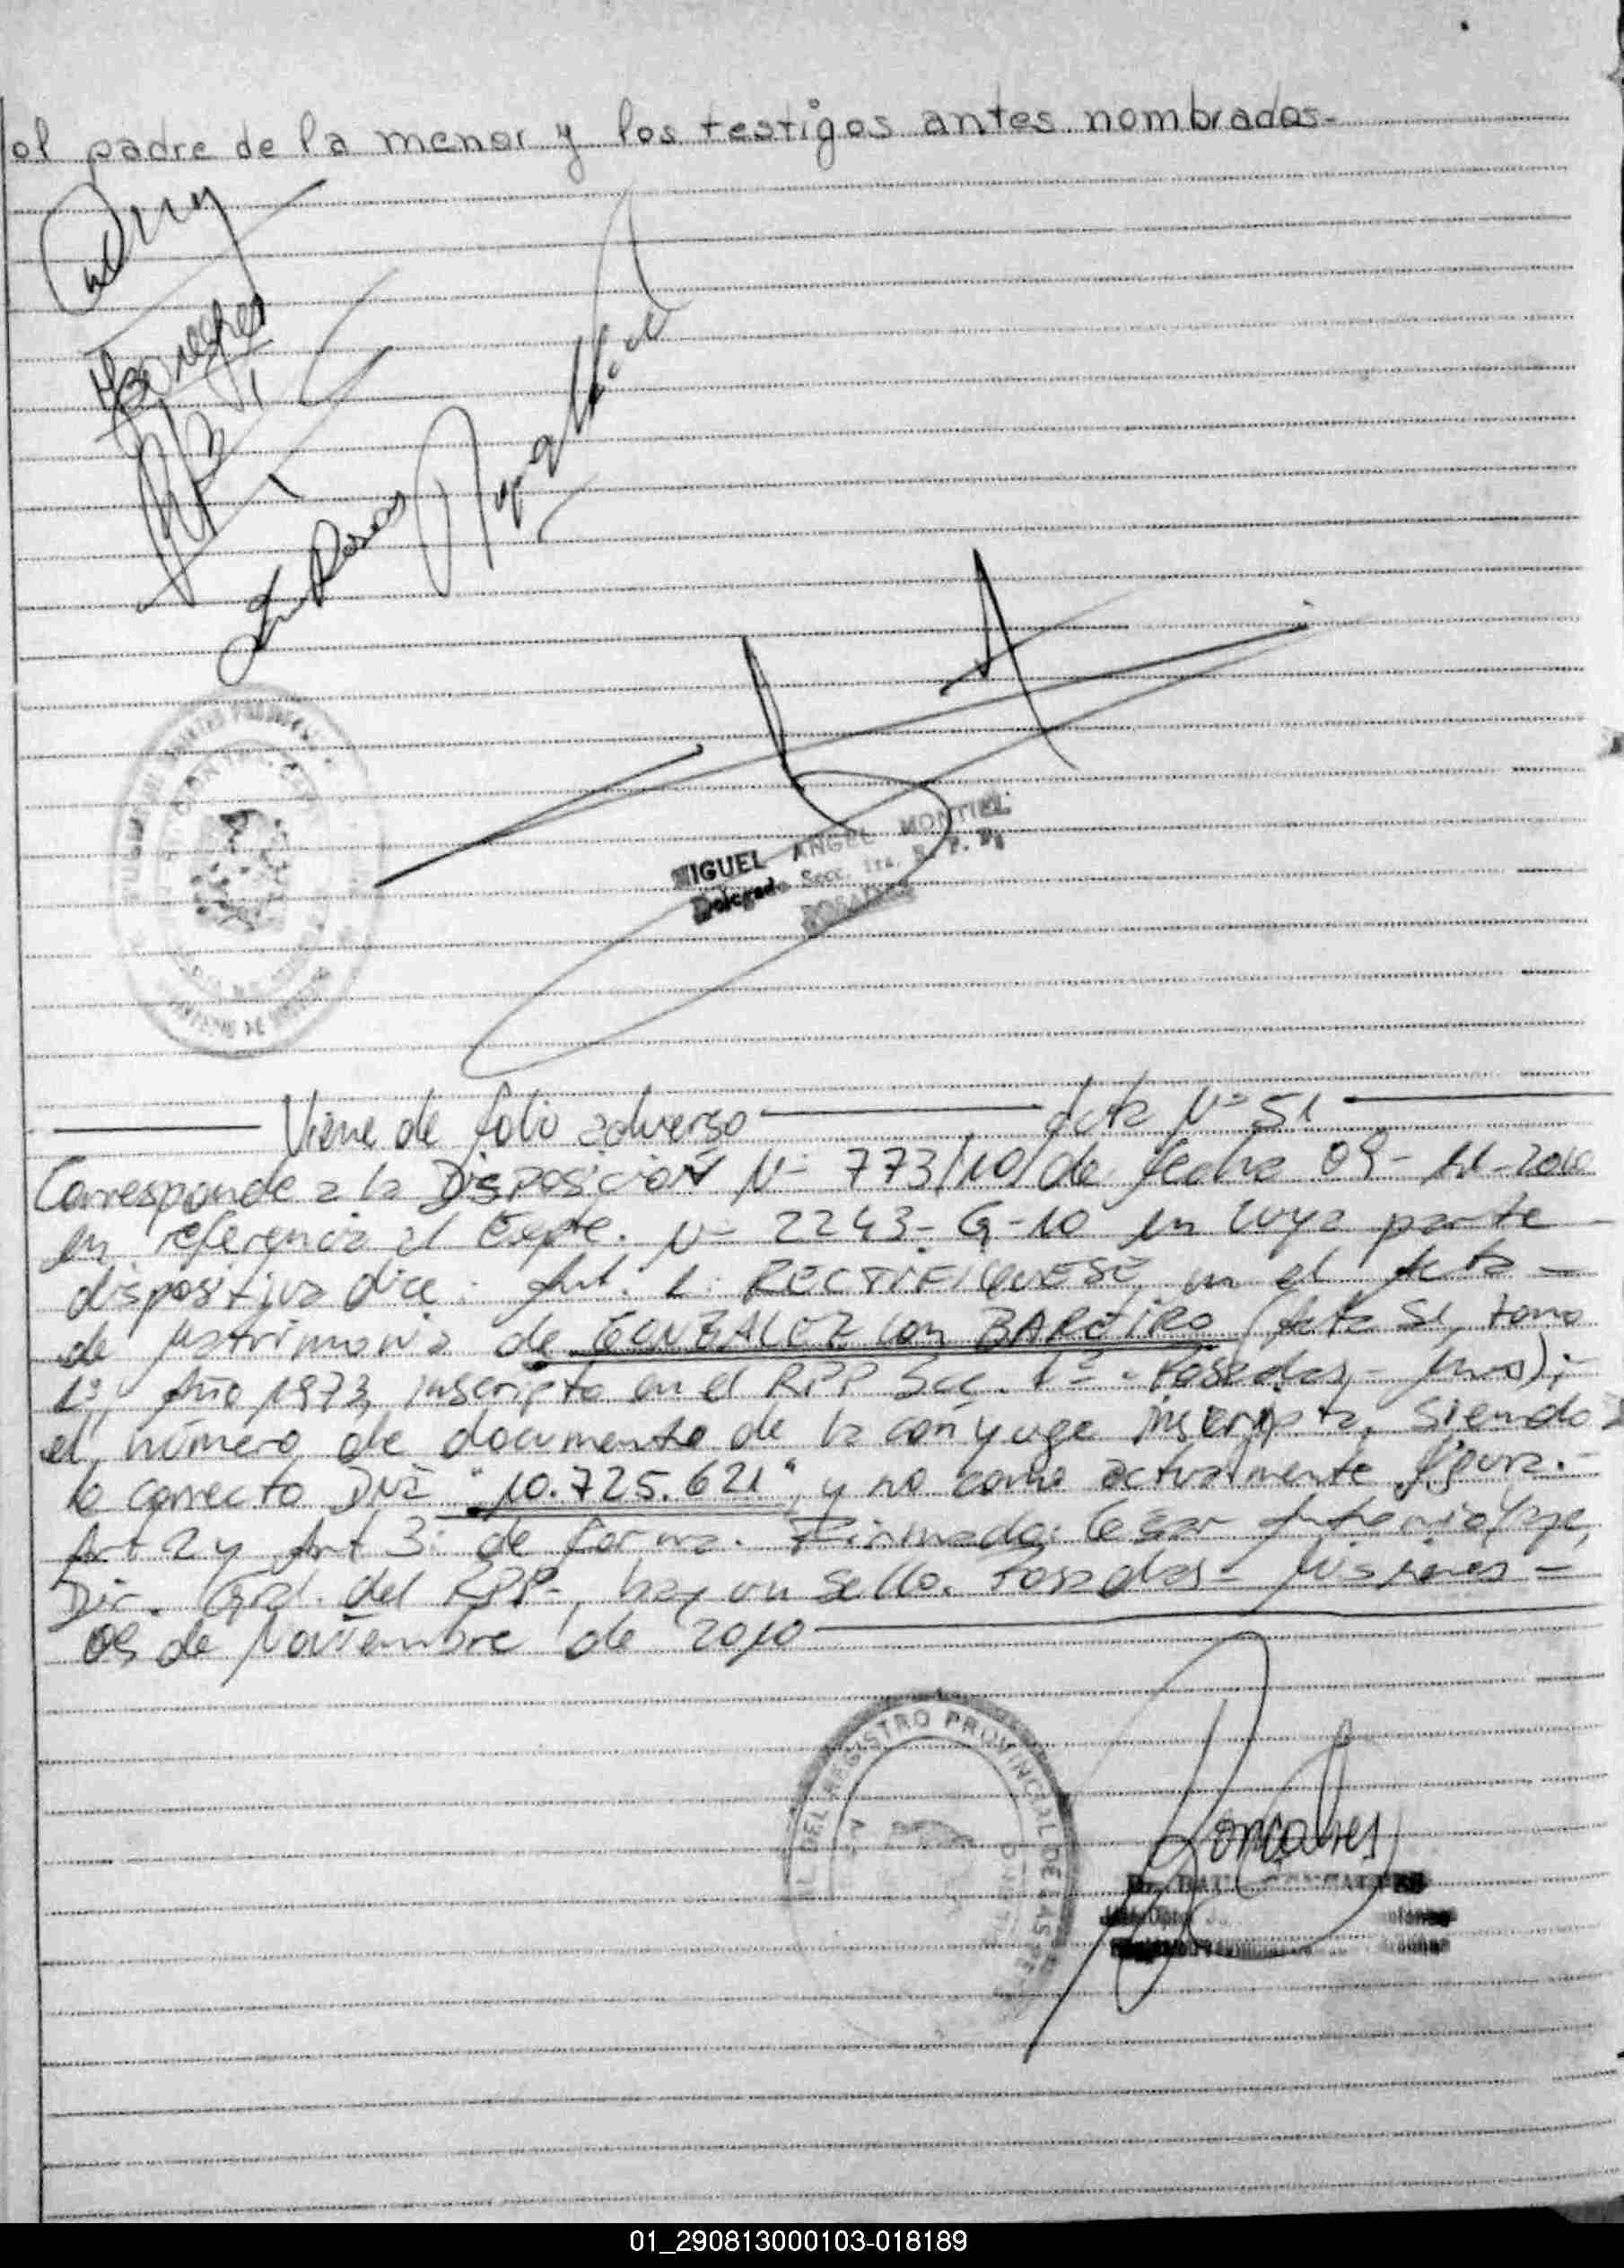 el padre de la menor y los testigos antes nombrados.-
MIGUEL ANGEL MONTIEL
Delegado Secc. 1ra. R. P. P.
POSADAS
Viene de folio adverso Acta Nº 51
Corresponde a la DISPOSICIóN Nº 773/10 de fecha 09-11-2010
en referencia al Expte. Nº 2243-G-10 en cuya parte
dispositiva dice: Art. 1: RECTIFIQUESE, en el Acta
de Matrimonio de GONZALEZ con BAREIRO (Acta 51, tomo
1º, Año 1973, inscripta en el RPP Sec. 1º - Posadas, Mnes);-
el número de documento de la cónyuge inscripta, siendo
lo correcto DNI "10.725.621", y no como actualmente figura.-
Art 2 y Art 3: de forma. Firmado: Cesar
Dir. Gral. del RPP-, hay un sello. Posadas- Misiones-
09 de Noviembre de 2010
DEL REGISTRO PROVINCIAL DE LAS PERS
Goncalves
01_290813000103-018189